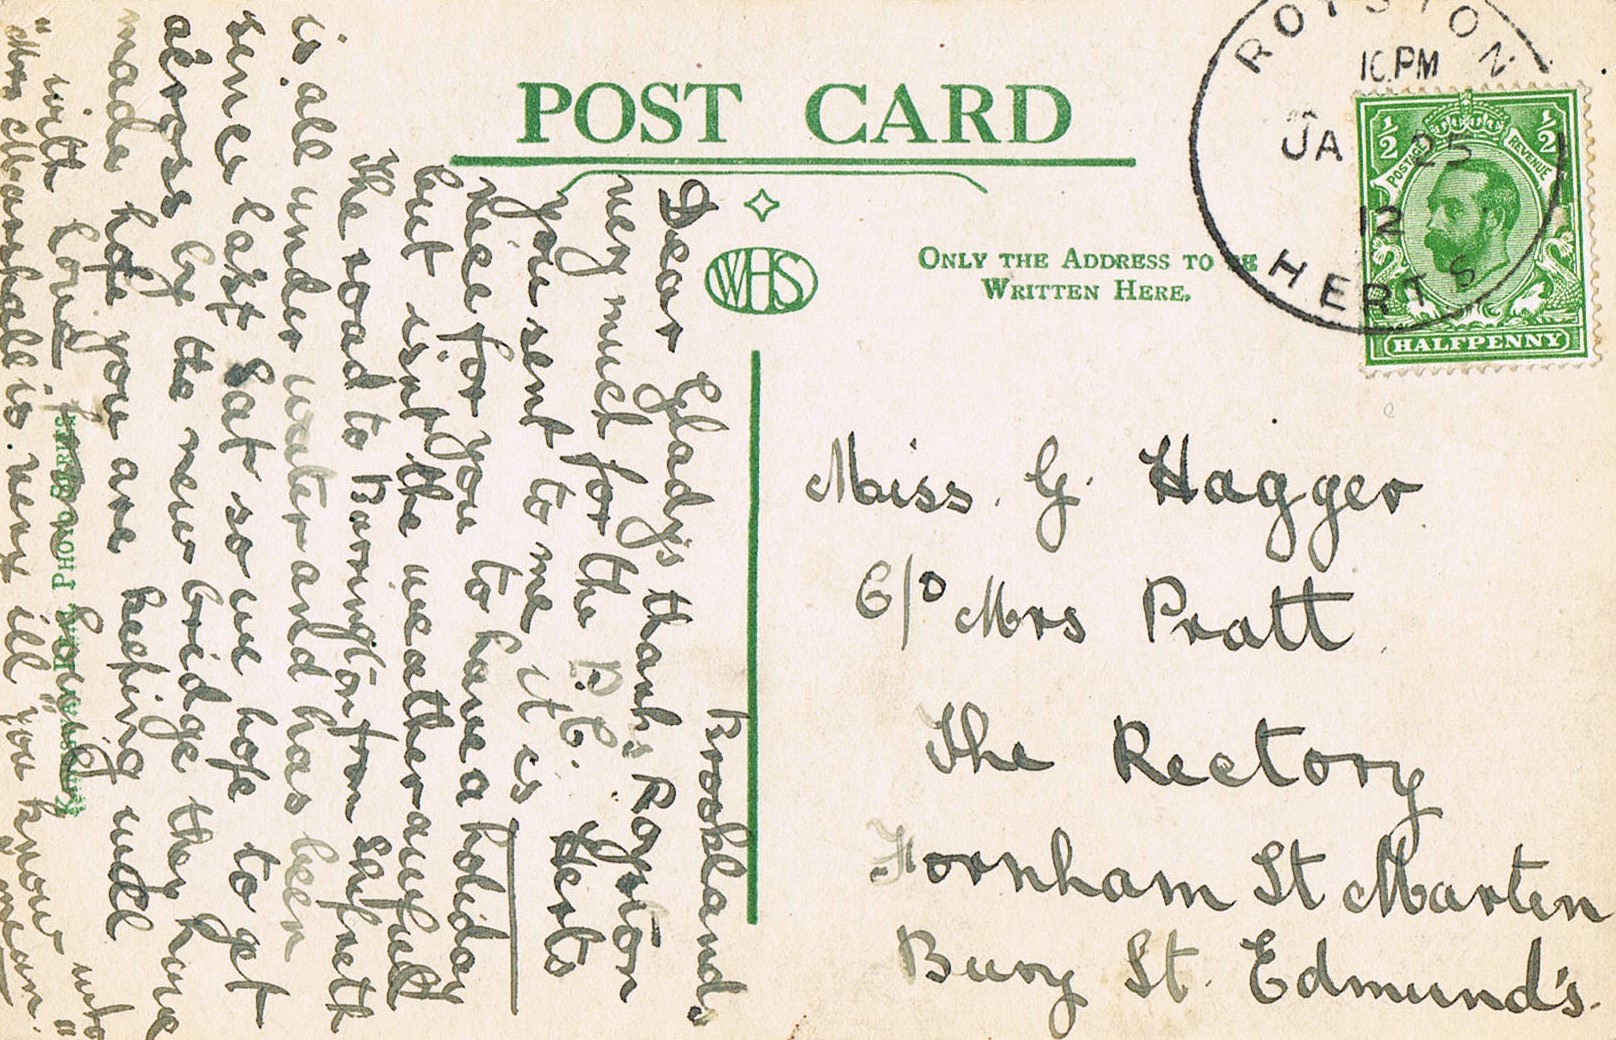 POST CARD
WHS
ONLY THE ADDRESS TO BE
WRITTEN HERE.
ROYSTON
10.PM
JA 25
12
HERTS
½ ½
POSTAGE REVENUE
HALFPENNY
Brooklands
Royston
Herts
Dear Gladys thanks
very much for the P.C.
you sent to me it is
nice for you to have a holiday
but isnt the weather awfull
the road to Barrington from Shepreth
is all under water and has been
since last Sat so we hope to get
across by the new bridge they have
made hope you are keeping well
with love from
"Mrs Marshall is very ill "you know mean"
PHOTO SERIES
Miss. G. Hagger
C/o Mrs Pratt
The Rectory
Fornham St Marten
Bury St. Edmund's.